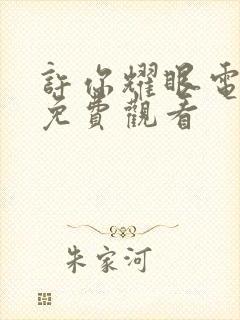 許你耀眼電
免費觀看
朱家河